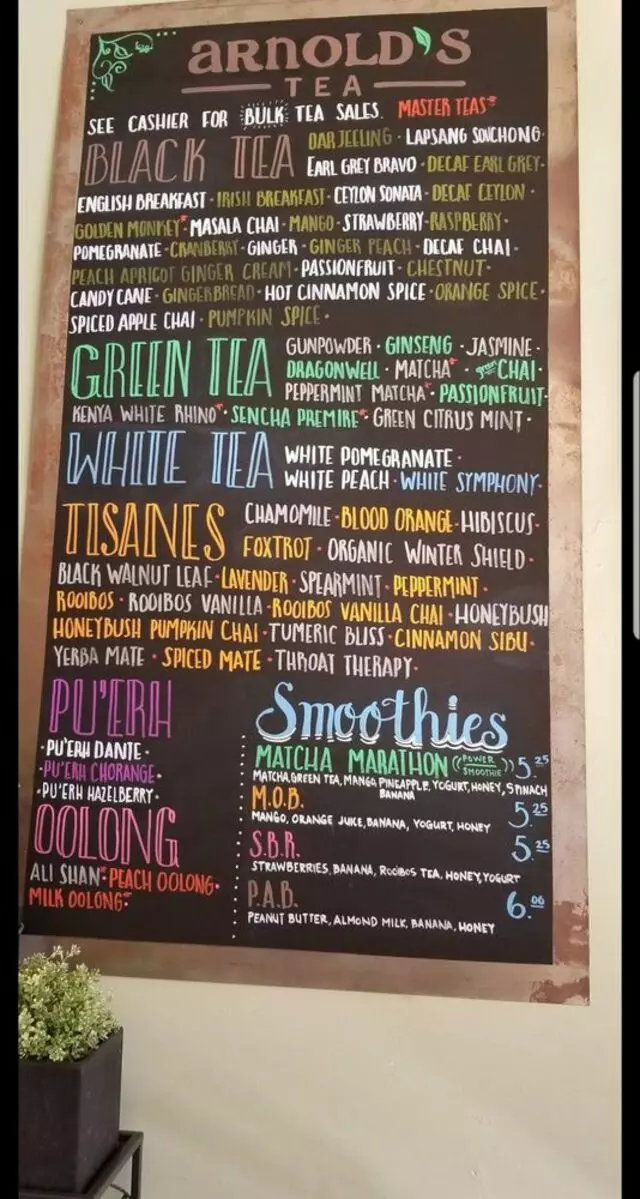 ARNOLD'S
TEA
SEE CASHIER FOR BULK TEA SALES. MASTER TEAS*
BLACK TEA
DARJEELING · LAPSANG SOUCHONG·
EARL GREY BRAVO · DECAF EARL GREY·
ENGLISH BREAKFAST · IRISH BREAKFAST · CEYLON SONATA · DECAF CEYLON ·
GOLDEN MONKEY* · MASALA CHAI · MANGO · STRAWBERRY · RASPBERRY ·
POMEGRANATE · CRANBERRY · GINGER · GINGER PEACH · DECAF CHAI ·
PEACH APRICOT GINGER CREAM · PASSIONFRUIT · CHESTNUT ·
CANDY CANE · GINGERBREAD · HOT CINNAMON SPICE · ORANGE SPICE ·
SPICED APPLE CHAI · PUMPKIN SPICE ·
GREEN TEA
GUNPOWDER · GINSENG · JASMINE ·
DRAGONWELL · MATCHA* · green CHAI ·
PEPPERMINT MATCHA* · PASSIONFRUIT·
KENYA WHITE RHINO* · SENCHA PREMIRE* · GREEN CITRUS MINT ·
WHITE TEA
WHITE POMEGRANATE ·
WHITE PEACH · WHITE SYMPHONY ·
TISANES
CHAMOMILE · BLOOD ORANGE · HIBISCUS ·
FOXTROT · ORGANIC WINTER SHIELD ·
BLACK WALNUT LEAF · LAVENDER · SPEARMINT · PEPPERMINT ·
ROOIBOS · ROOIBOS VANILLA · ROOIBOS VANILLA CHAI · HONEYBUSH
HONEYBUSH PUMPKIN CHAI · TUMERIC BLISS · CINNAMON SIBU ·
YERBA MATE · SPICED MATE · THROAT THERAPY ·
PU'ERH
· PU'ERH DANTE ·
· PU'ERH CHORANGE ·
· PU'ERH HAZELBERRY ·
OOLONG
ALI SHAN* · PEACH OOLONG ·
MILK OOLONG*
Smoothies
MATCHA MARATHON ((POWER SMOOTHIE)) 5.25
MATCHA, GREEN TEA, MANGO, PINEAPPLE, YOGURT, HONEY, SPINACH
BANANA
M.O.B. 5.25
MANGO, ORANGE JUICE, BANANA, YOGURT, HONEY
S.B.R. 5.25
STRAWBERRIES, BANANA, ROOIBOS TEA, HONEY, YOGURT
P.A.B. 6.00
PEANUT BUTTER, ALMOND MILK, BANANA, HONEY